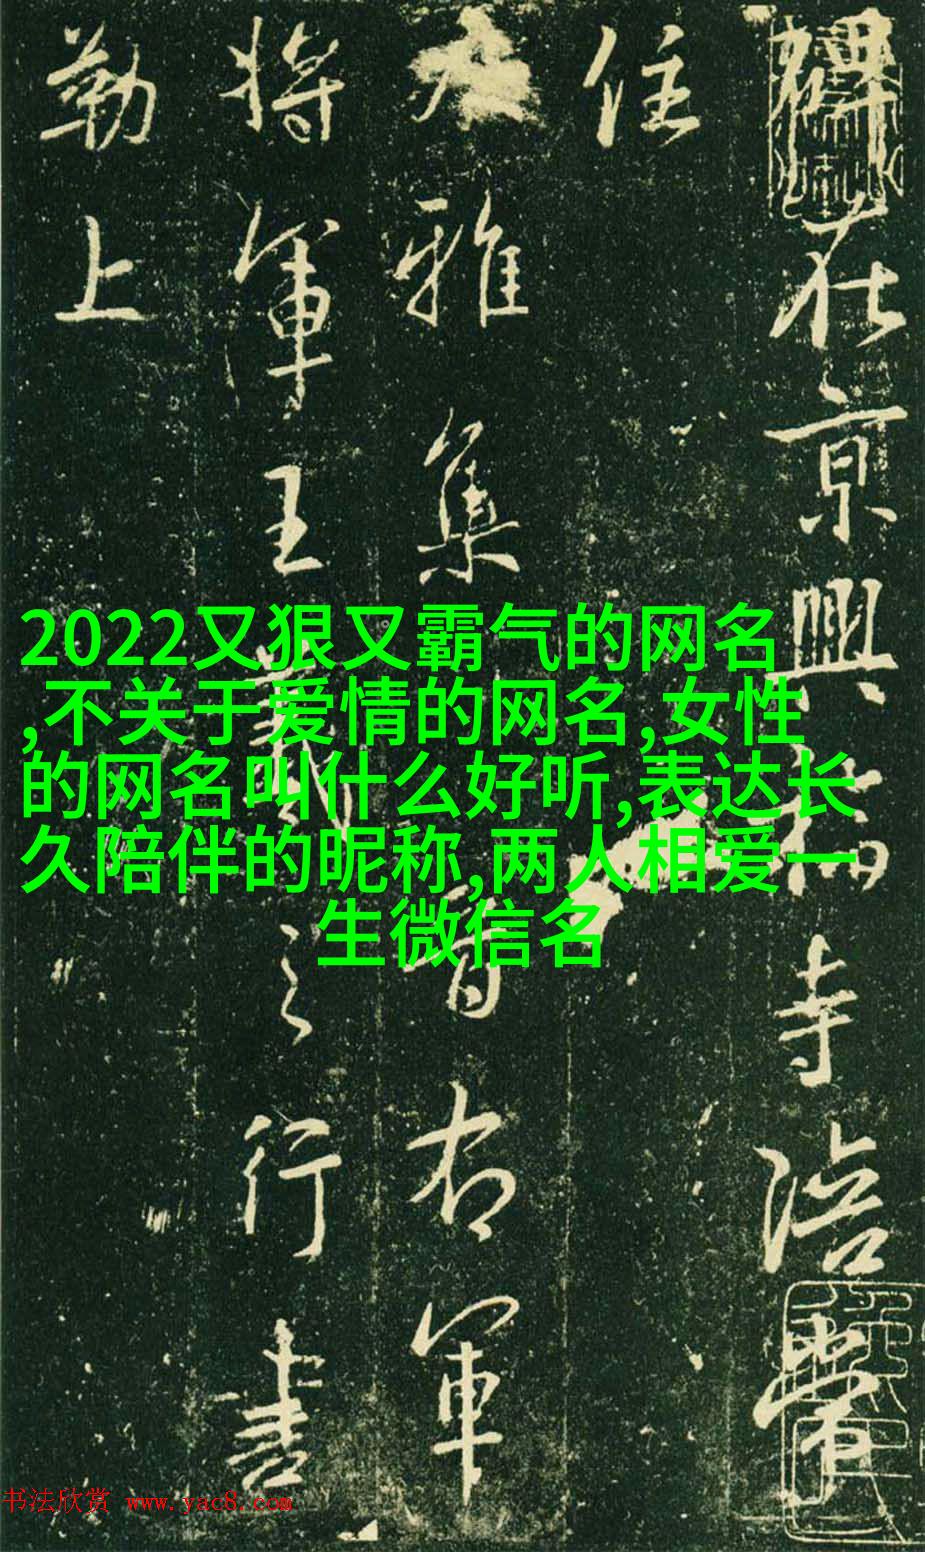 碑在京興福寺陪
住
雅集晉右軍
將軍王羲之行書
勒上
2022又狠又霸气的网名
,不关于爱情的网名,女性
的网名叫什么好听,表达长
久陪伴的昵称,两人相爱一
生微信名
书法欣赏 www.yac8.com